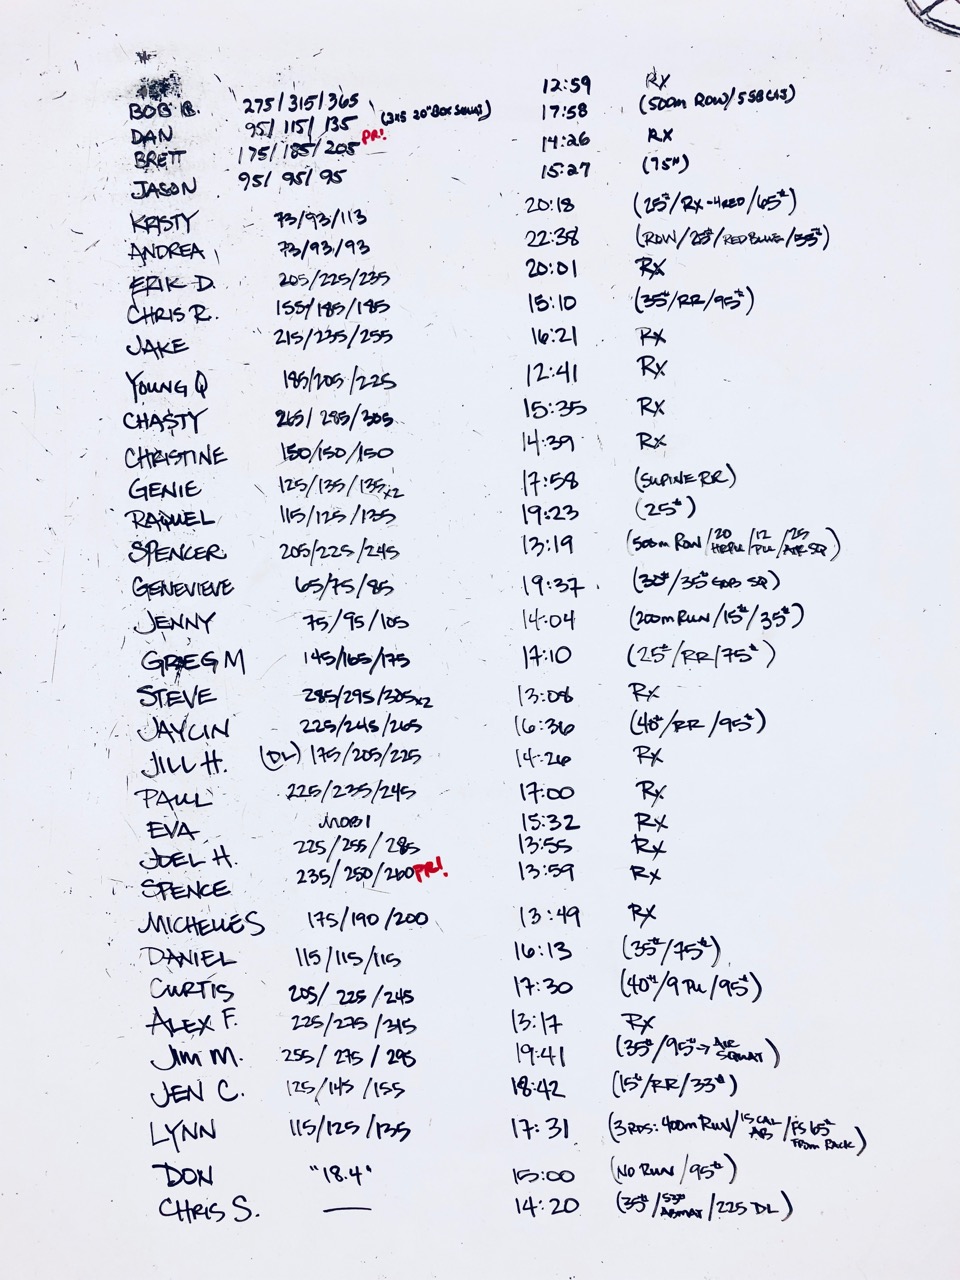 BOB B. 275/315/365 12:59 RX
DAN 95/115/135 (3x5 20" BOX SQUAT) 17:58 (500m ROW/55# C&J)
BRETT 175/185/205 PR! 14:26 RX
JASON 95/95/95 15:27 (75#)
KRISTY 73/93/113 20:18 (25#/RX-4RED/65#)
ANDREA 73/93/93 22:38 (ROW/25#/RED BLUE/33#)
ERIK D. 205/225/235 20:01 RX
CHRIS R. 155/185/185 15:10 (35#/RR/95#)
JAKE 215/235/255 16:21 RX
YOUNG Q 185/205/225 12:41 RX
CHASTY 265/285/305 15:35 RX
CHRISTINE 150/150/150 14:39 RX
GENIE 125/135/135x2 17:58 (SUPINE RR)
RAQUEL 115/125/135 19:23 (25#)
SPENCER 205/225/245 13:19 (500m ROW/20 HRPU/12 PU/25 AIR SQ)
GENEVIEVE 65/75/85 19:37 (30#/35# SQ)
JENNY 75/95/105 14:04 (200m RUN/15#/35#)
GREG M 145/165/175 17:10 (25#/RR/75#)
STEVE 285/295/305x2 13:08 RX
JAYLIN 225/245/265 16:36 (40#/RR/95#)
JILL H. (DL) 175/205/225 14:26 RX
PAUL 225/235/245 17:00 RX
EVA MOBI 15:32 RX
JOEL H. 225/255/285 13:55 RX
SPENCE 235/250/260 PR! 13:59 RX
MICHELLE S 175/190/200 13:49 RX
DANIEL 115/115/115 16:13 (35#/75#)
CURTIS 205/225/245 17:30 (40#/9 PU/95#)
ALEX F. 225/275/315 13:17 RX
JIM M. 255/275/295 19:41 (35#/95#→AIR SQUAT)
JEN C. 125/145/155 18:42 (15#/RR/33#)
LYNN 115/125/135 17:31 (3 RDS: 400m RUN/15 CAL AB/FS 65# FROM RACK)
DON "18.4" 15:00 (NO RUN/95#)
CHRIS S. — 14:20 (35#/ABMAT/225 DL)